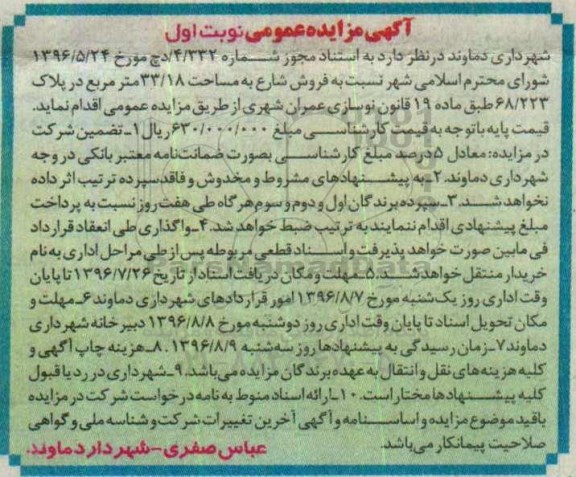 آگهی مزایده عمومی نوبت اول
شهرداری دماوند در نظر دارد به استناد مجوز شماره ۴/۳۳۲/دچ مورخ ۱۳۹۶/۵/۲۴
شورای محترم اسلامی شهر نسبت به فروش شارع به مساحت ۳۳/۱۸ متر مربع در پلاک
۶۸/۲۲۳ طبق ماده ۱۹ قانون نوسازی عمران شهری از طریق مزایده عمومی اقدام نماید.
قیمت پایه با توجه به قیمت کارشناسی مبلغ ۶۳۰/۰۰۰/۰۰۰ ریال ۱- تضمین شرکت
در مزایده: معادل ۵ درصد مبلغ کارشناسی بصورت ضمانت‌نامه معتبر بانکی در وجه
شهرداری دماوند. ۲- به پیشنهادهای مشروط و مخدوش و فاقد سپرده ترتیب اثر داده
نخواهد شد. ۳- سپرده برندگان اول و دوم و سوم هرگاه طی هفت روز نسبت به پرداخت
مبلغ پیشنهادی اقدام ننمایند به ترتیب ضبط خواهد شد. ۴- واگذاری طی انعقاد قرارداد
فی مابین صورت خواهد پذیرفت و اسناد قطعی مربوطه پس از طی مراحل اداری به نام
خریدار منتقل خواهد شد. ۵- مهلت و مکان دریافت اسناد از تاریخ ۱۳۹۶/۷/۲۶ تا پایان
وقت اداری روز یک‌شنبه مورخ ۱۳۹۶/۸/۷ امور قراردادهای شهرداری دماوند ۶- مهلت و
مکان تحویل اسناد تا پایان وقت اداری روز دوشنبه مورخ ۱۳۹۶/۸/۸ دبیرخانه شهرداری
دماوند ۷- زمان رسیدگی به پیشنهادها روز سه‌شنبه ۱۳۹۶/۸/۹. ۸- هزینه چاپ آگهی و
کلیه هزینه‌های نقل و انتقال به عهده برندگان مزایده می‌باشد. ۹- شهرداری در رد یا قبول
کلیه پیشنهادها مختار است. ۱۰- ارائه اسناد منوط به نامه درخواست شرکت در مزایده
با قید موضوع مزایده و اساسنامه و آگهی آخرین تغییرات شرکت و شناسه ملی و گواهی
صلاحیت پیمانکار می‌باشد. عباس صفری - شهردار دماوند.